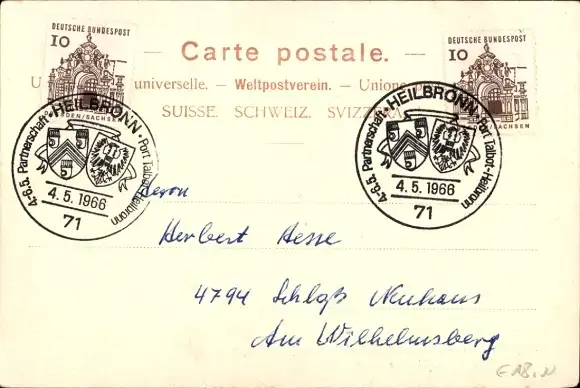 DEUTSCHE BUNDESPOST
10
DEUTSCHE BUNDESPOST
10
Carte postale.
universelle. — Weltpostverein. — Union
SUISSE. SCHWEIZ. SVIZZERA
DEN/SACHSEN
SACHSEN
4.-6.5. Partnerschaft · HEILBRONN · Port Talbot-Heilbronn
4.5.1966
71
4.-6.5. Partnerschaft · HEILBRONN · Port Talbot-Heilbronn
4.5.1966
71
Herrn
Herbert Hesse
4794 Schloß Neuhaus
Am Wilhelmsberg